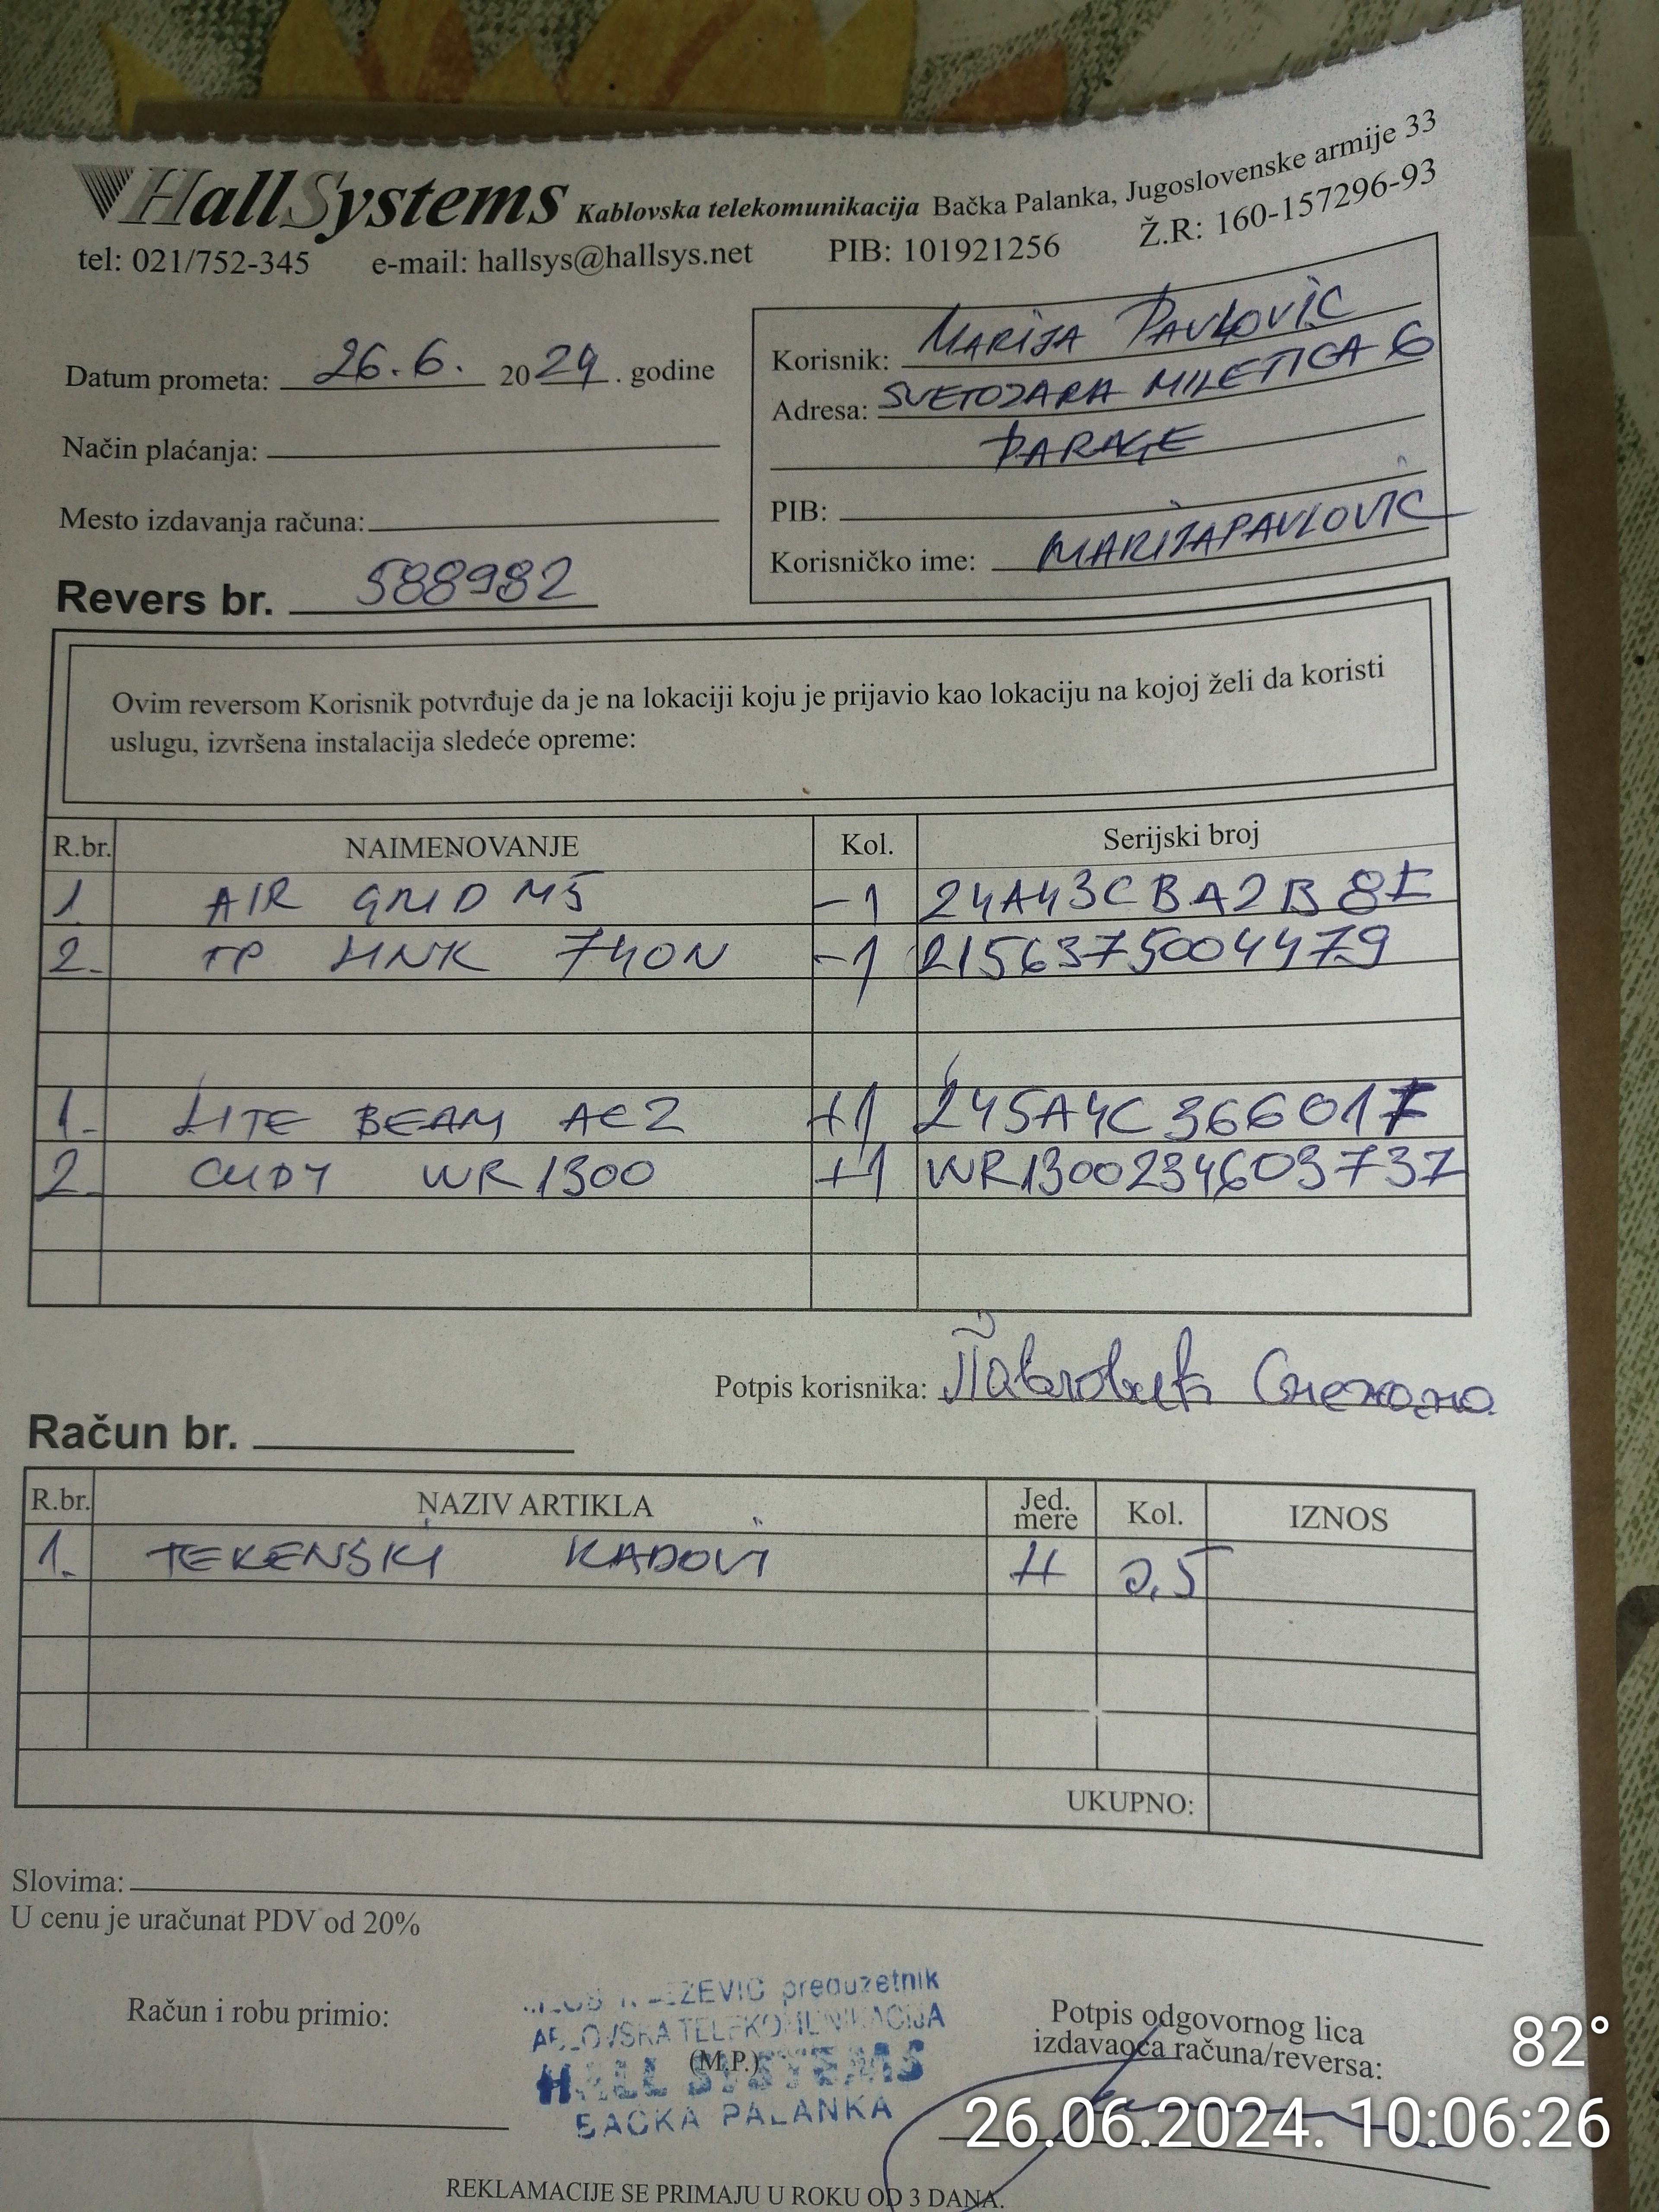 HallSystems Kablovska telekomunikacija Bačka Palanka, Jugoslovenske armije 33
tel: 021/752-345 e-mail: hallsys@hallsys.net PIB: 101921256 Ž.R: 160-157296-93
Datum prometa: 26.6. 2024. godine
Način plaćanja:
Mesto izdavanja računa:
Korisnik: MARIJA PAVLOVIC
Adresa: SVETOZARA MILETICA 6
PARAGE
PIB:
Korisničko ime: MARIJAPAVLOVIC
Revers br. 588982
Ovim reversom Korisnik potvrđuje da je na lokaciji koju je prijavio kao lokaciju na kojoj želi da koristi
uslugu, izvršena instalacija sledeće opreme:
R.br. NAIMENOVANJE Kol. Serijski broj
1 AIR GRID M5 -1 24A43CBA2B8F
2. TP LINK 740N -1 2156375004479
1. LITE BEAM AC2 +1 245A4C36601F
2. CUDY WR1300 +1 WR1300234603737
Potpis korisnika: Павловић Снежана
Račun br.
R.br. NAZIV ARTIKLA Jed. mere Kol. IZNOS
1. TERENSKI RADOVI H 0,5
UKUPNO:
Slovima:
U cenu je uračunat PDV od 20%
Račun i robu primio:
preduzetnik
TELEKOMUNIKACIJA
(M.P.)
HALL SYSTEMS
BAČKA PALANKA
Potpis odgovornog lica
izdavaoca računa/reversa:
82°
26.06.2024. 10:06:26
REKLAMACIJE SE PRIMAJU U ROKU OD 3 DANA.